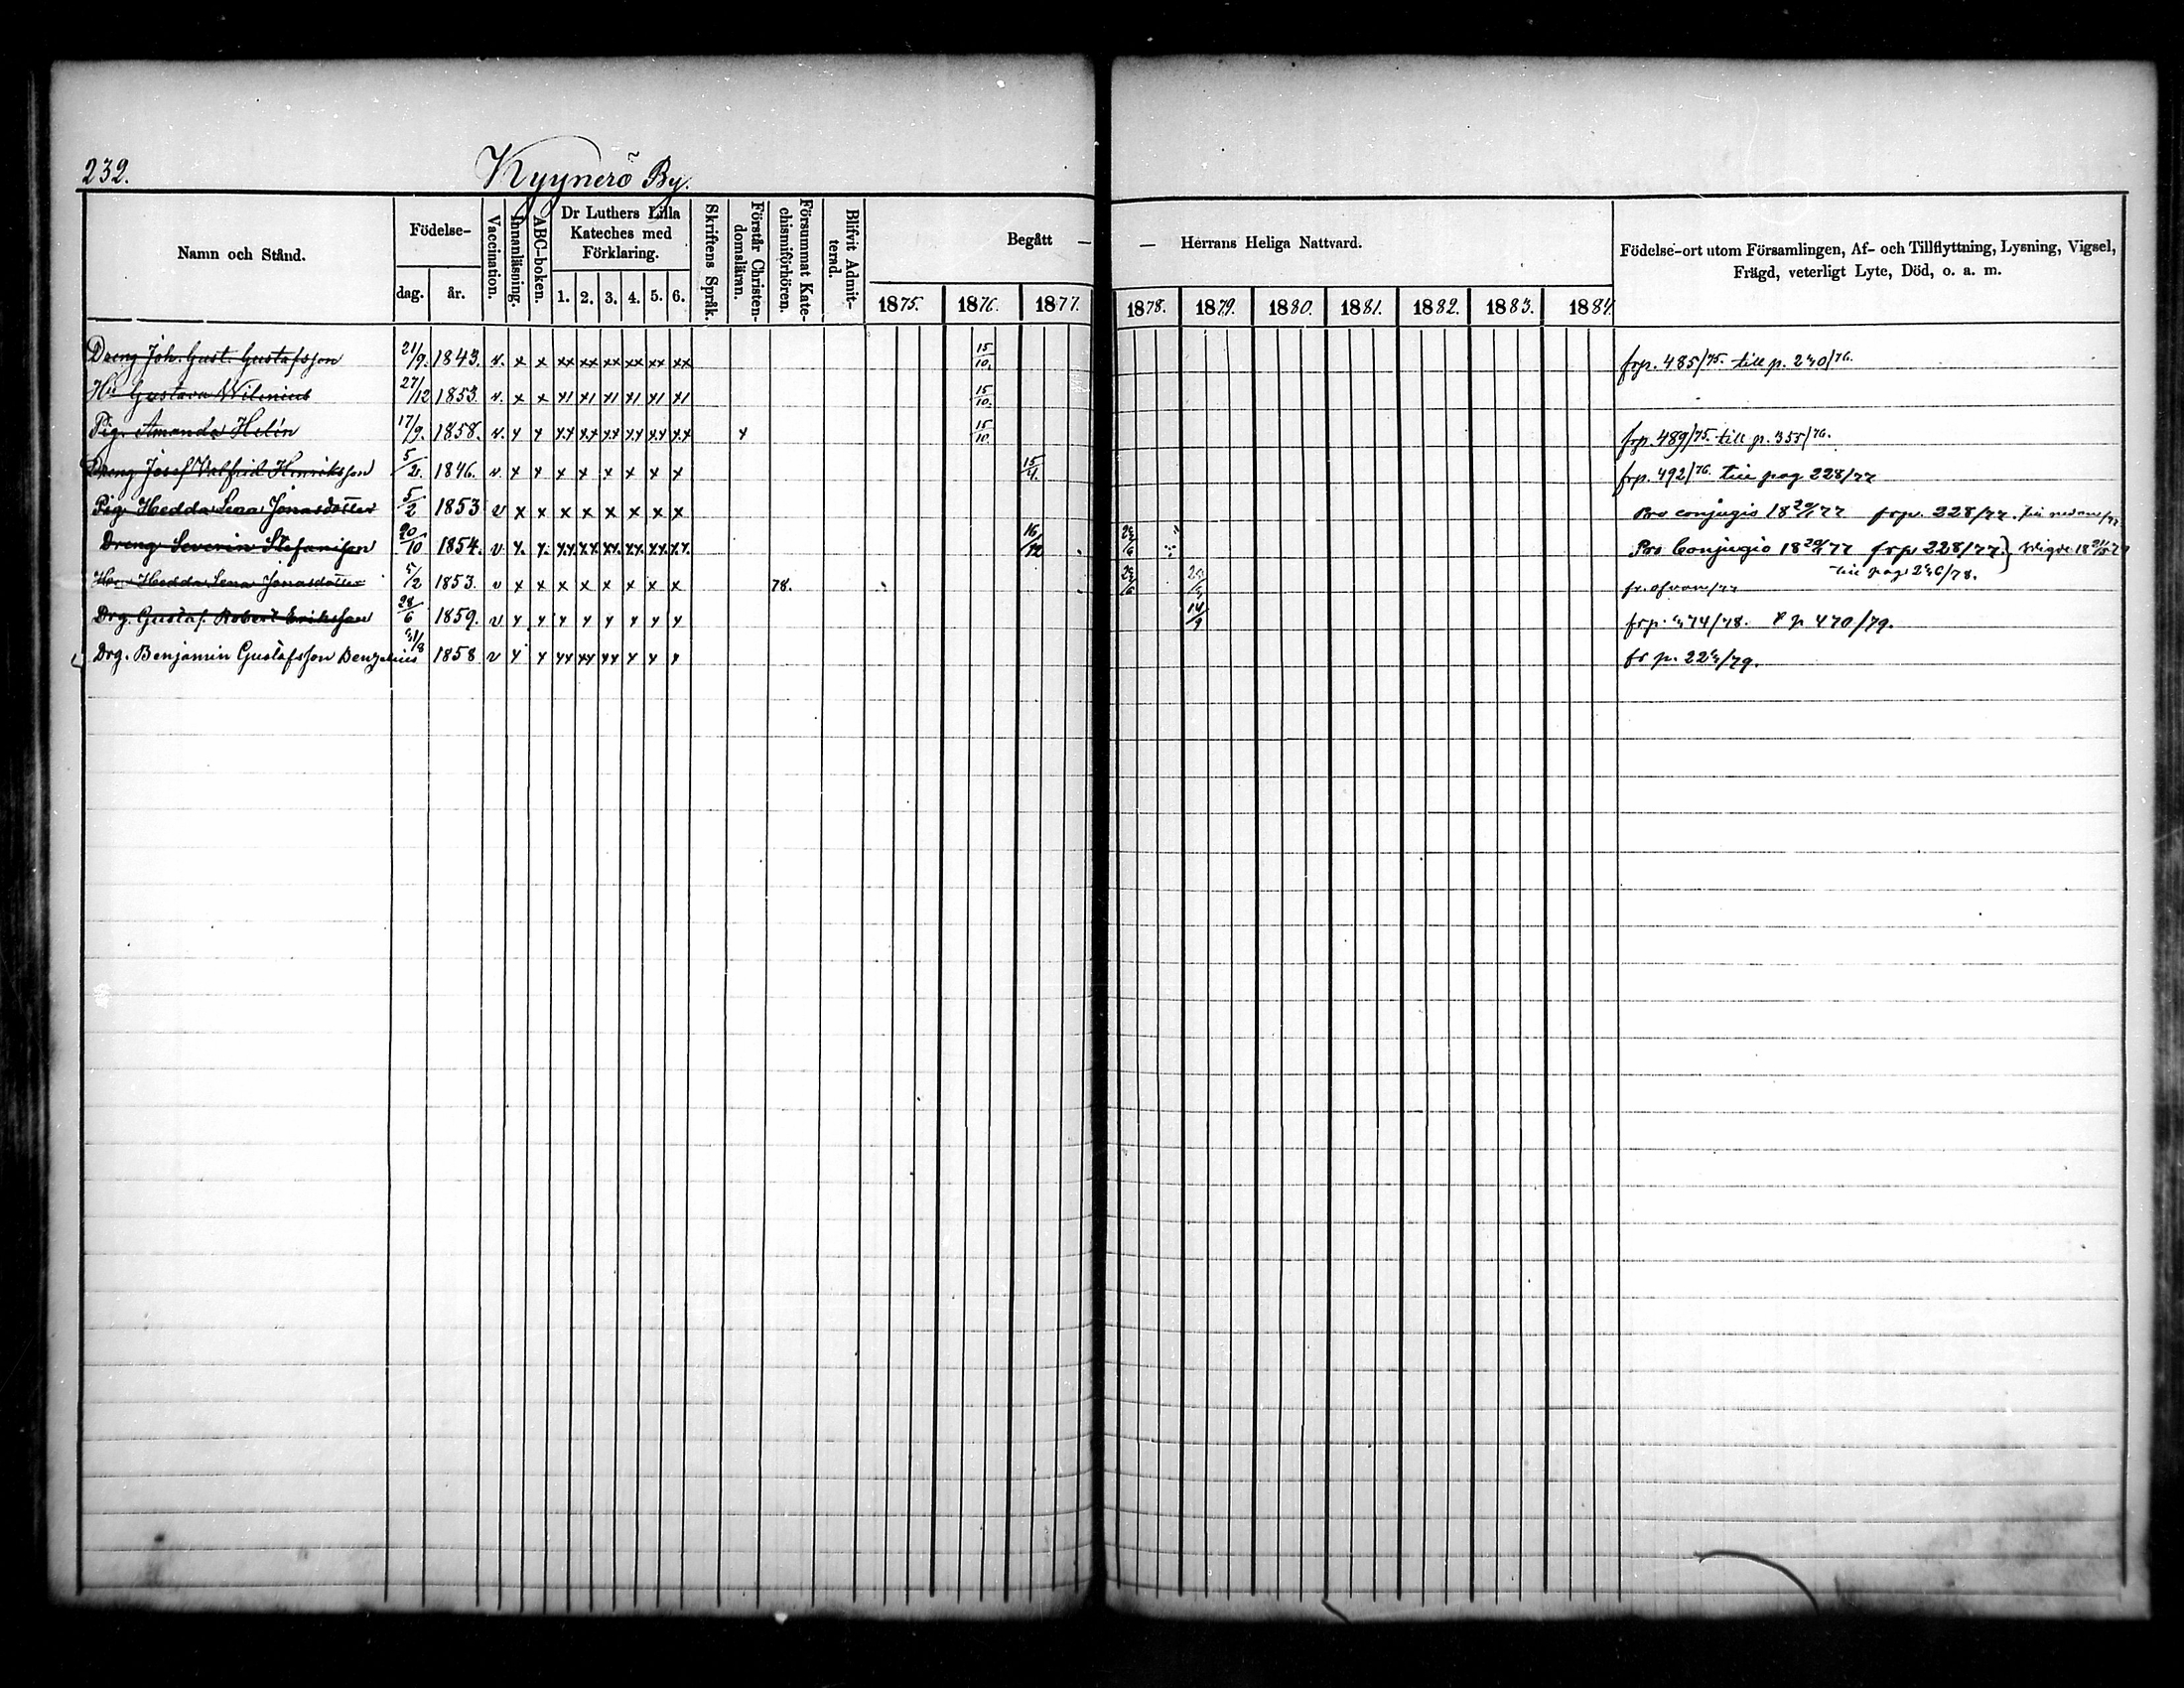 232. Kyynerö By.
Namn och Stånd. Födelse- dag. år. Vaccination. Innanläsning. ABC-boken. Dr Luthers Lilla Kateches med Förklaring. 1. 2. 3. 4. 5. 6. Skriftens Språk. Förstår Christendomsläran. Försummat Katechismiförhören. Blifvit Admitterad. Begått — — Herrans Heliga Nattvard. 1875. 1876. 1877. 1878. 1879. 1880. 1881. 1882. 1883. 1884. Födelse-ort utom Församlingen, Af- och Tillflyttning, Lysning, Vigsel, Frägd, veterligt Lyte, Död, o. a. m.
Dreng Joh. Gust. Gustafsson 21/9. 1843. v. x x xx xx xx xx xx xx 15/10. frp. 485/75. till p. 240/76.
Hu Gustava Wilenius 27/12 1853. v. x x x1 x1 x1 x1 x1 x1 15/10.
Pig. Amanda Helén 17/9. 1858. v. x x xx xx xx xx xx xx x 15/10 frp. 489/75. till p. 355/76.
Dreng Josef Walfrid Henriksson 5/2. 1846. v. x x x x x x x x 15/4. frp. 492/76. till pag 228/77
Pig. Hedda Lena Jonasdotter 5/2 1853 v x x x x x x x x Pro conjugio 18 20/ 77 frp. 228/77.
Dreng Severin Stefansson 20/10 1854. v x. x. xx xx xx. xx. xx. xx. 16/12 Pro Conjugio 18 20/ 77 frp 228/77. Wigde 18
till pag 246/78.
Hedda Lena Jonasdotter 5/2 1853. v x x x x x x x x 78. fr. ofvan/77
Drg. Gustaf Robert Eriksson 28/6 1859. v x x x x x x x x 14/9 frp. 474/78. p 470/79.
Drg. Benjamin Gustafsson Benzelius 31/8 1858 v x x xx xx xx x x x fr p. 224/79.